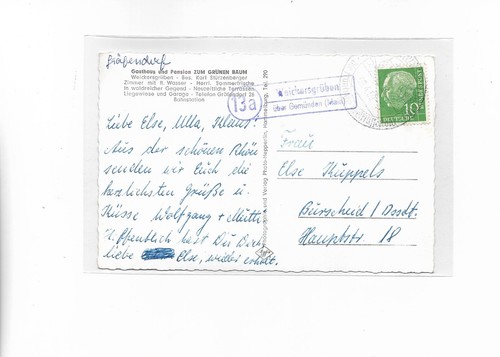 Gräfendorf
Gasthaus und Pension ZUM GRÜNEN BAUM
Weickersgrüben - Bes. Karl Stürzenberger
Zimmer mit fl. Wasser - Herrl. Sommerfrische
in waldreicher Gegend - Neuzeitliche Terrassen
Liegewiese und Garage - Telefon Gräfendorf 20
Bahnstation
13a
Weickersgrüben
über Gemünden (Main)
10
Liebe Else, Ulla, Klaus!
Aus der schönen Rhön
senden wir Euch die
herzlichsten Grüße u.
Küsse Wolfgang + Mutti
Hoffentlich hast Du Dich
liebe Else, wieder erholt.
Frau
Else Küppels
Burscheid / Dssdf.
Hauptstr 18